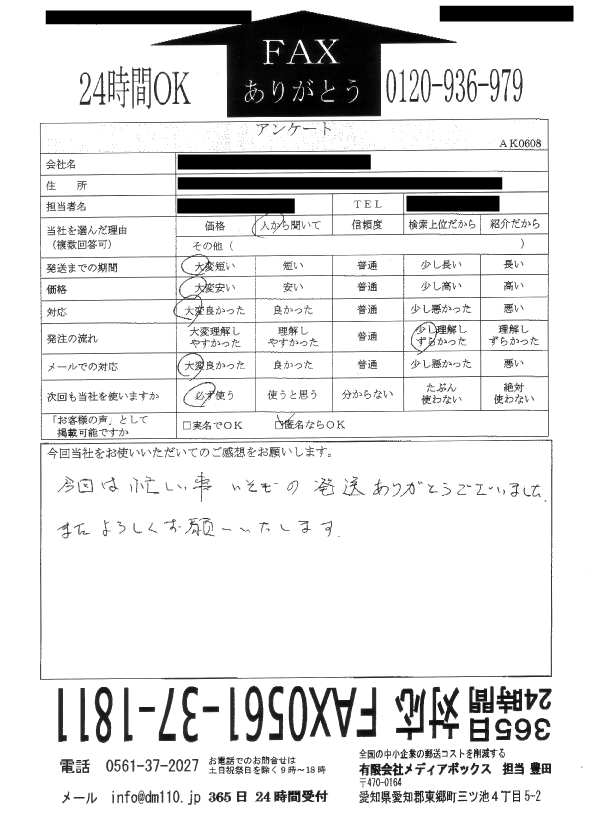 FAX
ありがとう
24時間OK
0120-936-979
アンケート
AK0608
会社名
住　所
担当者名 TEL
当社を選んだ理由
(複数回答可)
価格 人から聞いて 信頼度 検索上位だから 紹介だから
その他( )
発送までの期間 大変短い 短い 普通 少し長い 長い
価格 大変安い 安い 普通 少し高い 高い
対応 大変良かった 良かった 普通 少し悪かった 悪い
発注の流れ 大変理解しやすかった 理解しやすかった 普通 少し理解しずらかった 理解しずらかった
メールでの対応 大変良かった 良かった 普通 少し悪かった 悪い
次回も当社を使いますか 必ず使う 使うと思う 分からない たぶん使わない 絶対使わない
「お客様の声」として
掲載可能ですか
□実名でOK □匿名ならOK
今回当社をお使いいただいてのご感想をお願いします。
今回は忙しい事 いそぎの 発送ありがとうございました.
またよろしくお願いいたします.
365日
24時間 対応 FAX0561-37-1811
電話 0561-37-2027 お電話でのお問合せは
土日祝祭日を除く9時～18時
メール info@dm110.jp 365日 24時間受付
全国の中小企業の郵送コストを削減する
有限会社メディアボックス 担当 豊田
〒470-0164
愛知県愛知郡東郷町三ツ池4丁目5-2